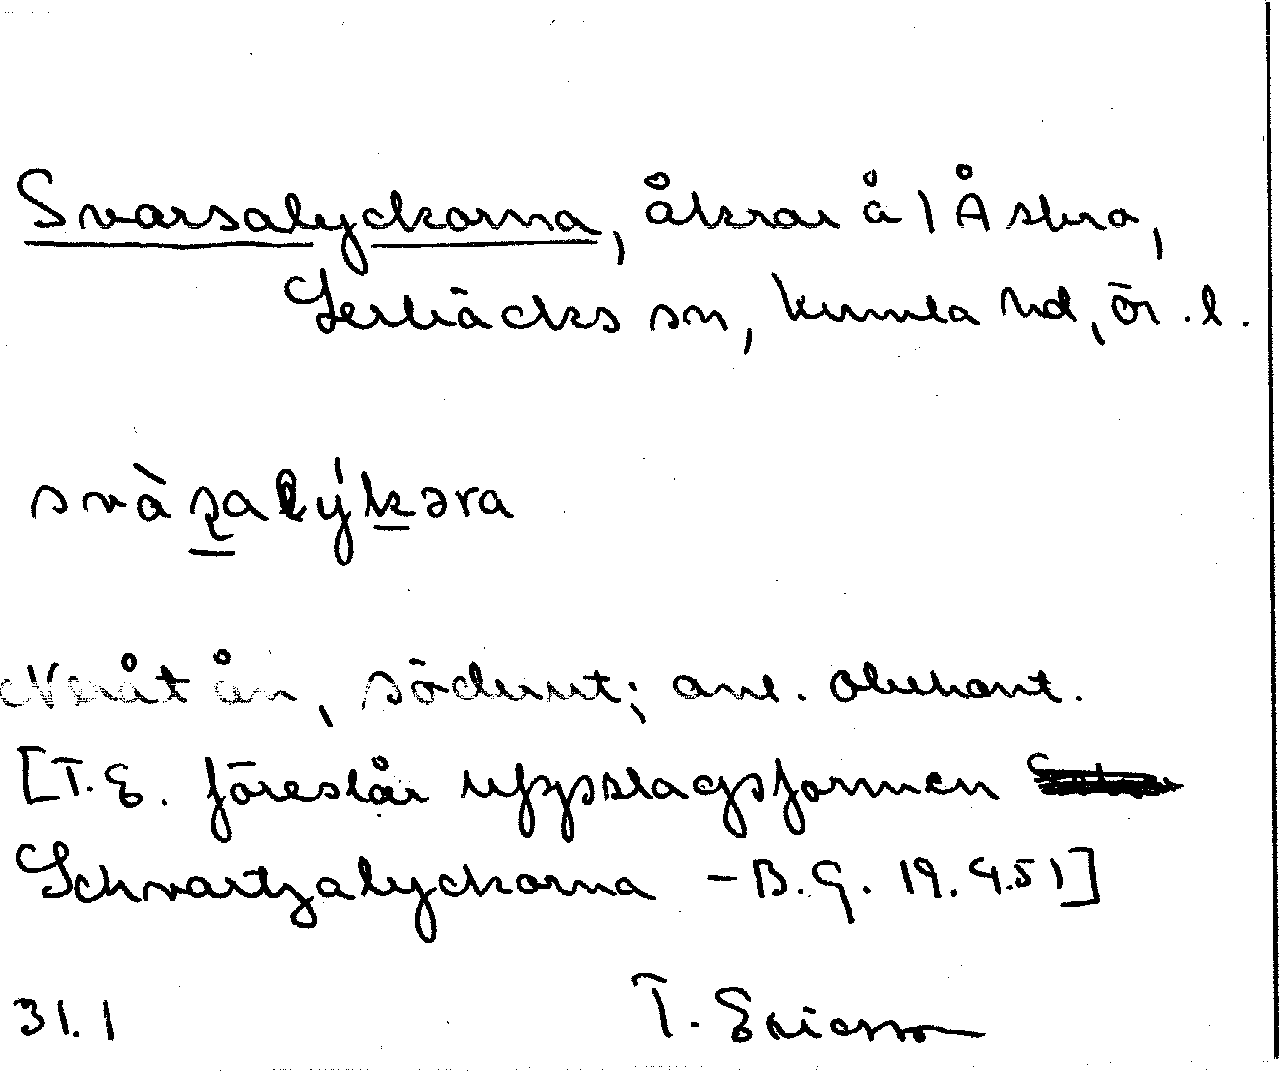 Svarsalyckorna, åkrar å 1 Åsbro,
Lerbäcks sn, Kumla hd, ör. l.
svàʂalýkəra
Neråt ån, söderut; anl. obekant.
[T. E. föreslår uppslagsformen
Schvartzalyckorna – B. G. 19.9.51]
31.1 T. Ericsson